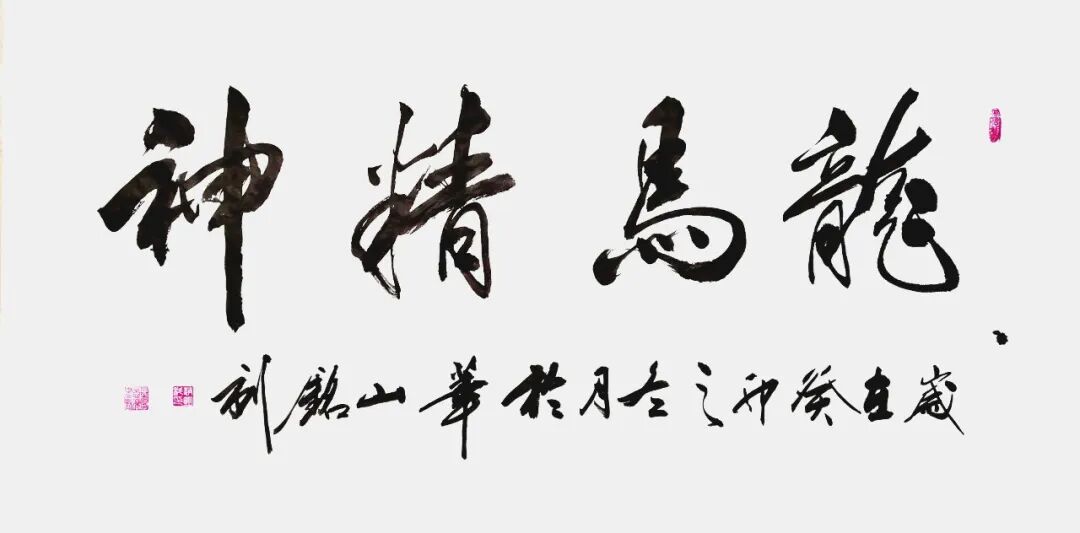 龍馬精神
歲在癸卯之冬月於華山銘刻